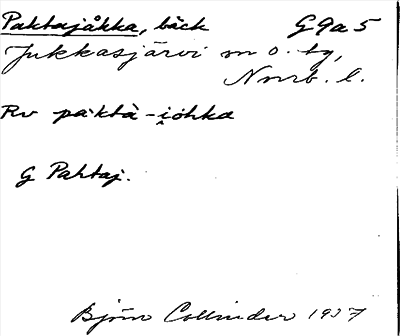 Paktajåkka, bäck G9a5
Jukkasjärvi sn o. tg,
Nnrb. l.
Rv paktà-i̯ohka
G Pahtaj.
Björn Collinder 1937